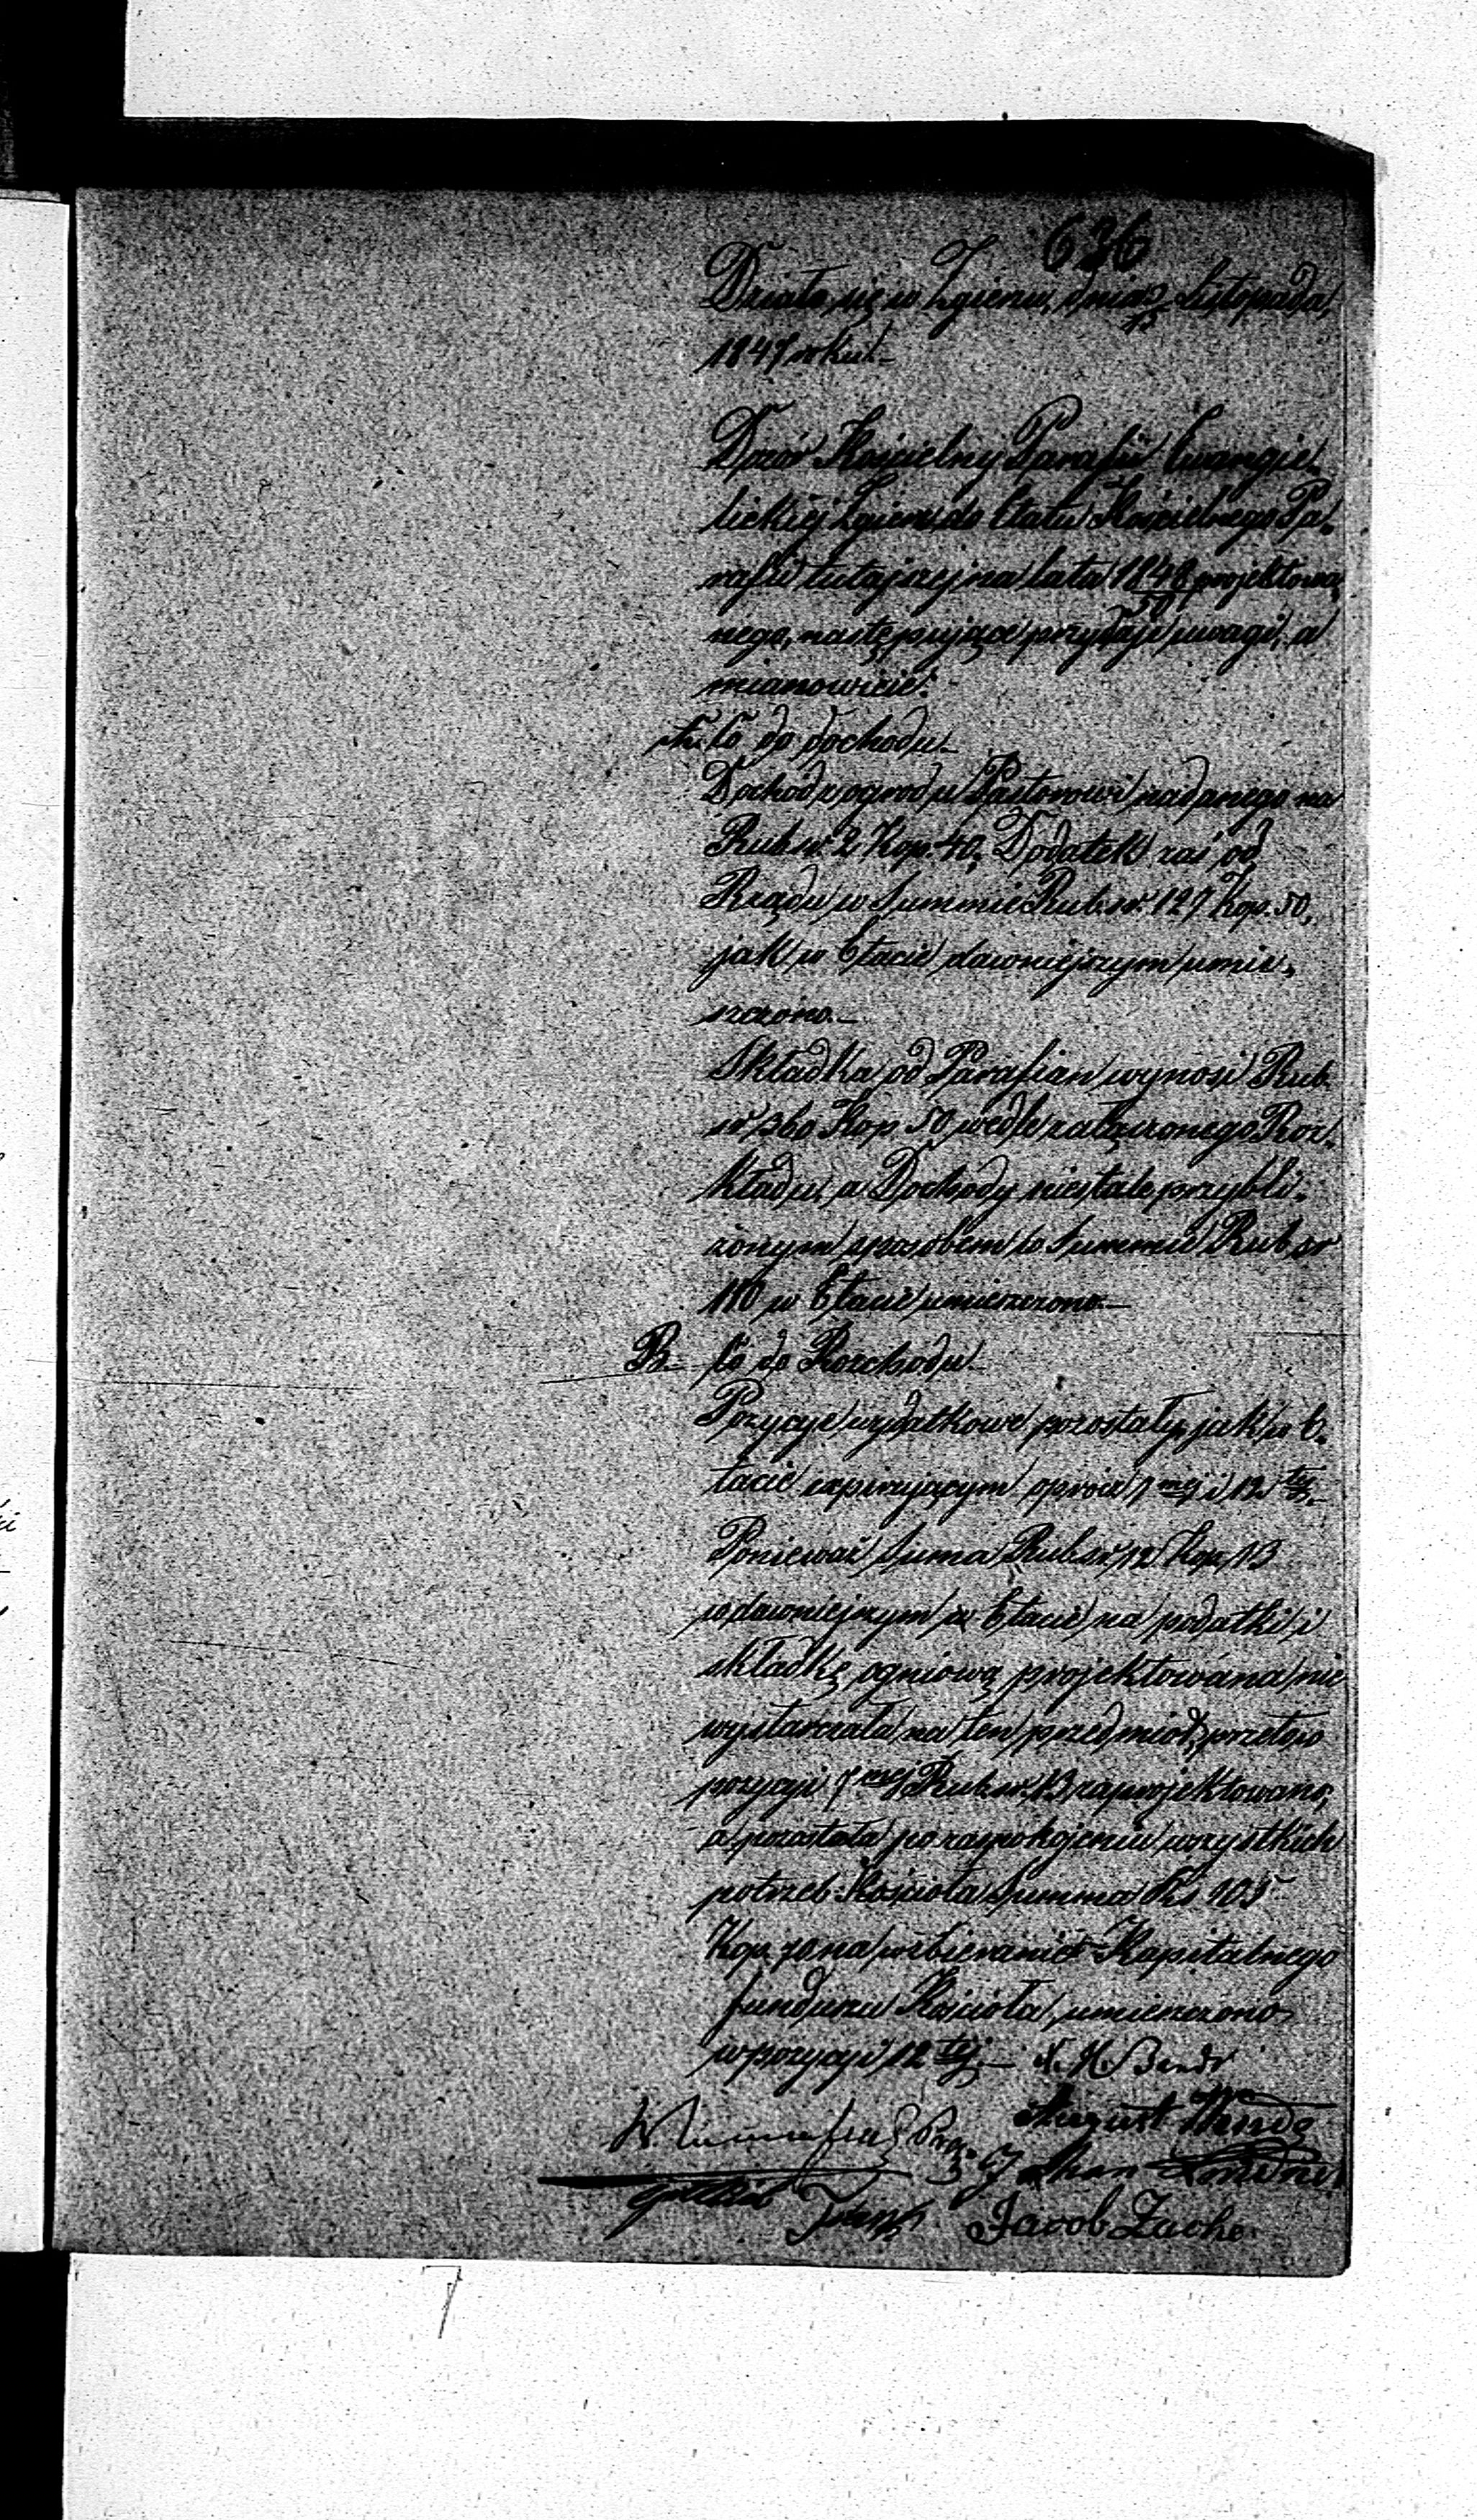 636
Działo się w Zgierzu, dnia 3/15 Listopada
1847 roku.—
Dozór Kościelny Parafii Ewangie-
lickiej Zgierz do Etatu Kościelnego Pa-
rafii tutajszej na lata 1848/50 projektowa-
nego, następujące przydaje uwagi, a
mianowicie:
A. Co do dochodu.—
Dochód z ogrodu Pastorowi nadanego na
Rub. sr. 2 Kop. 40. Dodatek zaś od
Rządu w Summie Rub. sr. 127 Kop. 50,
jak w Etacie dawniejszym umie-
szczono.—
Składka od Parafian wynosi Rub.
sr 360 Kop 50 wedle załączonego Roz-
kładu, a Dochody niestałe przybli-
żonym sposobem w Summie Rub. sr
110 w Etacie umieszczono.—
B. Co do Rozchodu.
Pozycye wydatkowe pozostały, jak w E-
tacie expirującym oprócz 7mej i 12tej.—
Ponieważ Suma Rub. sr. 12 Kop. 13
w dawniejszym w Etacie na podatki i
składkę ogniową projektowana nie
wystarczała na ten przedmiot, przeto w
pozycyi 7mej Rub. sr. 13 zaprojektowano,
a pozostała po zaspokojeniu wszystkich
potrzeb Kościoła Summa Rs. 105
Kop. 70 na uzbieranie Kapitalnego
funduszu Kościoła, umieszczono
w pozycyi 12tej.—
August Wende
Gottlieb
Jacob Zacho
7